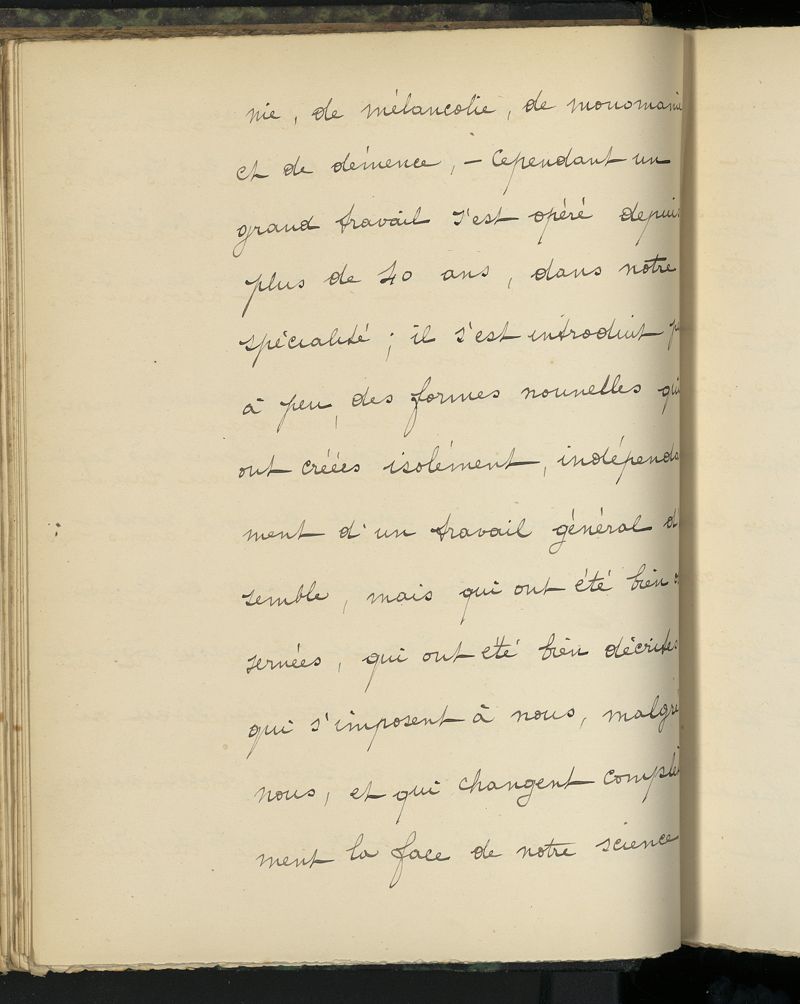 nie, de mélancolie, de monomanie
et de démence, – Cependant un
grand travail s'est opéré depuis
plus de 40 ans, dans notre
spécialité ; il s'est introduit
à peu, des formes nouvelles qui
ont créées isolément, indépenda
ment d'un travail général d'
semble, mais qui ont été bien
servées, qui ont été bien décrites
qui s'imposent à nous, malgré
nous, et qui changent complè
ment la face de notre science